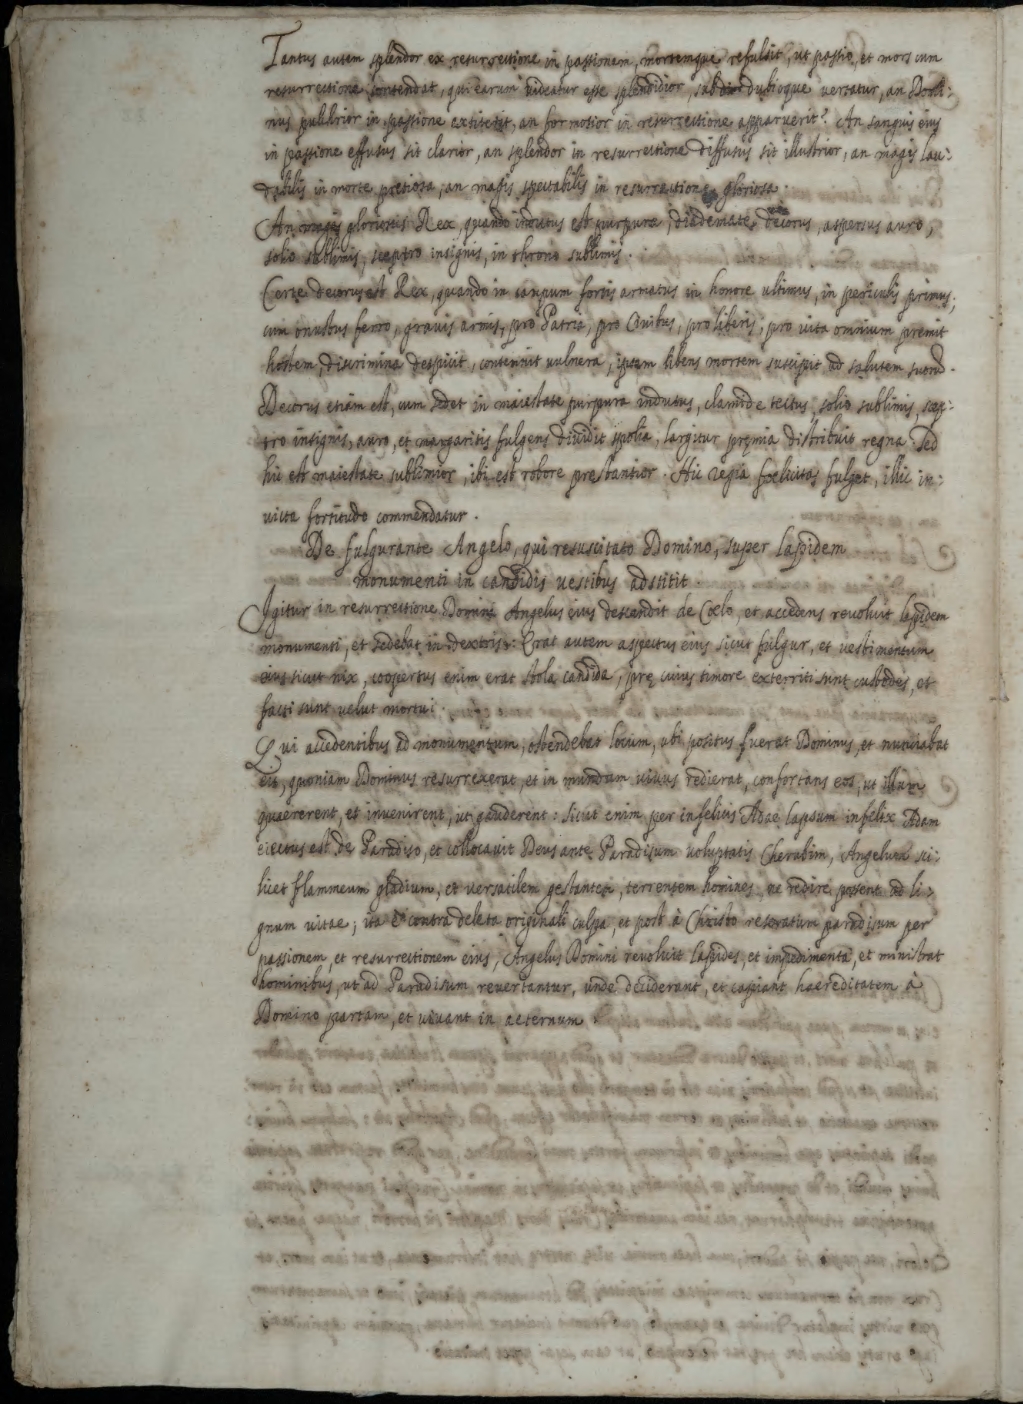 Tantus autem splendor ex resurrectione in passionem, mortemque refulsit, ut passio, et mors cum
resurrectione contendat, qui earum videatur esse splendidior, sub dubioque versatur, an Domi-
nus pulchrior in passione extiterit, an formosior in resurrectione apparuerit? An sanguis eius
in passione effusus sit clarior, an splendor in resurrectione diffusus sit illustrior, an magis lau-
dabilis in morte pretiosa, an magis spectabilis in resurrectione gloriosa.
An magis gloriosus Rex, quando indutus est purpura, diademate decorus, aspersus auro,
solio sublimis, sceptro insignis, in throno sublimis.
Certe decorus est Rex, quando in campum fortis armatus in honore ultimus, in periculis primus;
cum onustus ferro, gravis armis, pro Patria, pro Civibus, pro liberis, pro vita omnium premit
hostem, discrimina despicit, contemnit vulnera, ipsam libens mortem suscipit ad salutem suorũ.
Decorus etiam est, cum sedet in maiestate purpura indutus, clamide tectus, solio sublimis, scep-
tro insignis, auro, et margaritis fulgens diuidit spolia, largitur pręmia distribuit regna. Sed
hic est maiestate sublimior, ibi est robore prestantior. Hic regia foelicitas fulget, illic in-
victa fortitudo commendatur.
De fulgurante Angelo, qui resuscitato Domino, super lapidem
monumenti in candidis vestibus adstitit.
Igitur in resurrectione Domini Angelus eius descendit de Coelo, et accedens reuoluit lapidem
monumenti, et sedebat in dextris: Erat autem aspectus eius sicut fulgur, et vestimentum
eius sicut nix, coopertus enim erat stola candida, prę cuius timore exterriti sunt custodes, et
facti sunt velut mortui.
Qui accedentibus ad monumentum, ostendebat locum, ubi positus fuerat Dominus, et nuntiabat
eis, quoniam Dominus resurrexerat, et in mundum vivus redierat, confortans eos, ut illum
quaererent, et invenirent, ut gauderent: Sicut enim per infelicis Adae lapsum infelix Adam
eiectus est de Paradiso, et collocauit Deus ante Paradisum voluptatis Cherubim, Angelum sci-
licet flammeum gladium, et versatilem gestantem, terrentem homines ne redire possent ad li-
gnum vitae; ita è contra deleta originali culpa, et post à Christo reseratum paradisum per
passionem, et resurrectionem eius, Angelus Domini reuoluit lapides, et impedimenta, et ministrat
hominibus, ut ad Paradisum reuertantur, unde deciderant, et capiant haereditatem à
Domino partam, et vivant in aeternum.